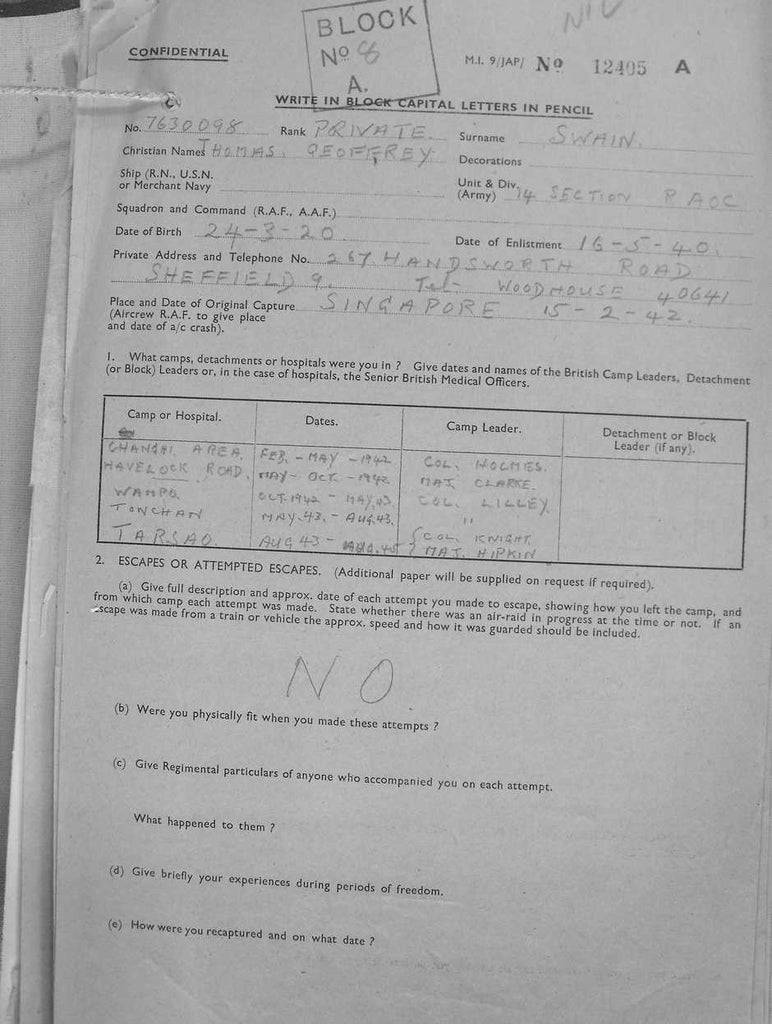 BLOCK
Nº 8
A.
NIL
CONFIDENTIAL
M.I. 9/JAP/ Nº 12405 A
WRITE IN BLOCK CAPITAL LETTERS IN PENCIL
No. 7630098 Rank PRIVATE Surname SWAIN.
Christian Names THOMAS. GEOFFREY Decorations
Ship (R.N., U.S.N. or Merchant Navy
Unit & Div. (Army) 14 SECTION RAOC
Squadron and Command (R.A.F., A.A.F.)
Date of Birth 24-3-20 Date of Enlistment 16-5-40.
Private Address and Telephone No. 267 HANDSWORTH ROAD
SHEFFIELD 9. Tel- WOODHOUSE 40641
Place and Date of Original Capture SINGAPORE 15-2-42.
(Aircrew R.A.F. to give place
and date of a/c crash).
1. What camps, detachments or hospitals were you in ? Give dates and names of the British Camp Leaders, Detachment
(or Block) Leaders or, in the case of hospitals, the Senior British Medical Officers.
Camp or Hospital. Dates. Camp Leader. Detachment or Block Leader (if any).
CHANGHI AREA. FEB. - MAY - 1942 COL. HOLMES.
HAVELOCK ROAD. MAY - OCT. - 1942 MAJ. CLARKE.
WAMPO. OCT. 1942 - MAY. 43. COL. LILLEY.
TONCHAN MAY. 43. - AUG. 43. "
TARSAO. AUG 43 - COL. KNIGHT.
MAJ. HIPKIN
2. ESCAPES OR ATTEMPTED ESCAPES. (Additional paper will be supplied on request if required).
(a) Give full description and approx. date of each attempt you made to escape, showing how you left the camp, and
from which camp each attempt was made. State whether there was an air-raid in progress at the time or not. If an
escape was made from a train or vehicle the approx. speed and how it was guarded should be included.
NO
(b) Were you physically fit when you made these attempts ?
(c) Give Regimental particulars of anyone who accompanied you on each attempt.
What happened to them ?
(d) Give briefly your experiences during periods of freedom.
(e) How were you recaptured and on what date ?